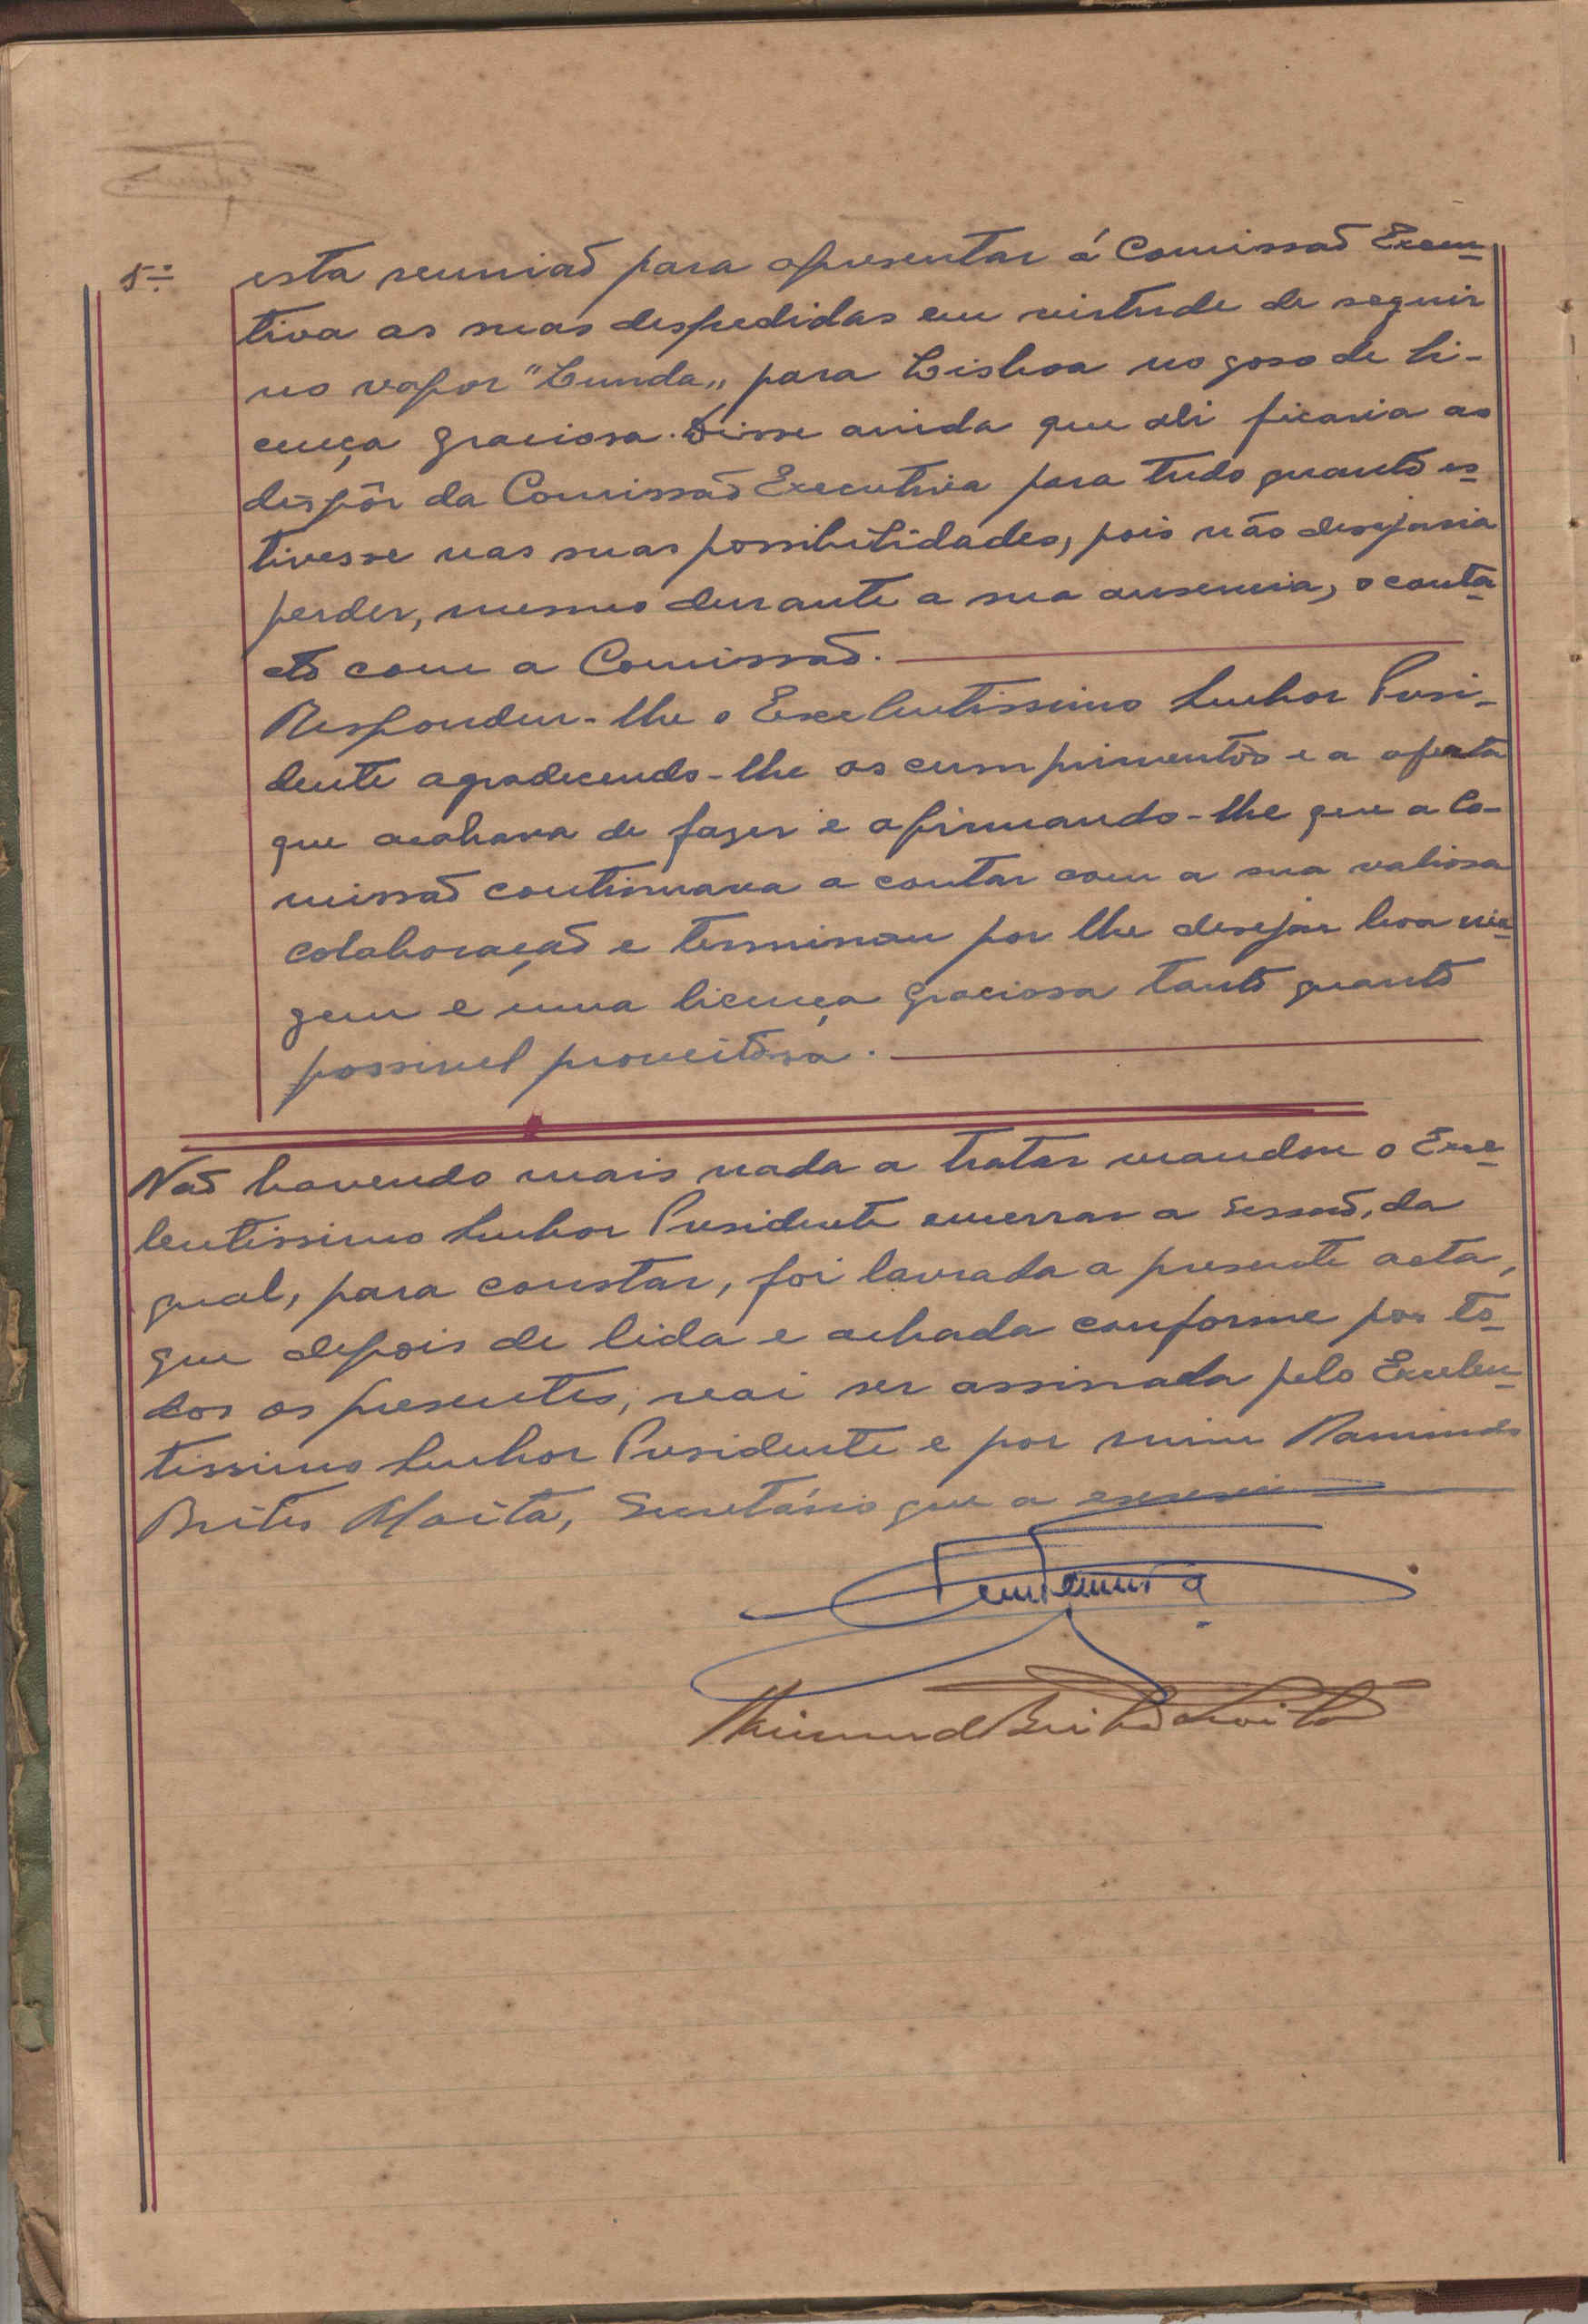 5º esta reunião para apresentar á Comissão Execu-
tiva as suas despedidas em virtude de seguir
no vapor "Lunda" para Lisboa no goso de li-
cença graciosa. Disse ainda que ali ficaria ao
dispôr da Comissão Executiva para tudo quanto es-
tivesse nas suas possibilidades, pois não desejaria
perder, mesmo durante a sua ausencia, o conta-
cto com a Comissão.
Respondeu-lhe o Excelentissimo Senhor Presi-
dente agradecendo-lhe os cumprimentos e a oferta
que acabava de fazer e afirmando-lhe que a Co-
missão continuava a contar com a sua valiosa
colaboração e terminou por lhe desejar boa via-
gem e uma licença graciosa tanto quanto
possivel proveitosa.
Não havendo mais nada a tratar mandou o Exce-
lentissimo Senhor Presidente encerrar a sessão, da
qual, para constar, foi lavrada a presente acta,
que depois de lida e achada conforme por to-
dos os presentes, vai ser assinada pelo Excelen-
tissimo Senhor Presidente e por mim Raimundo
Brites Moita, Secretário que a escrevi
Raimundo Brites Moita